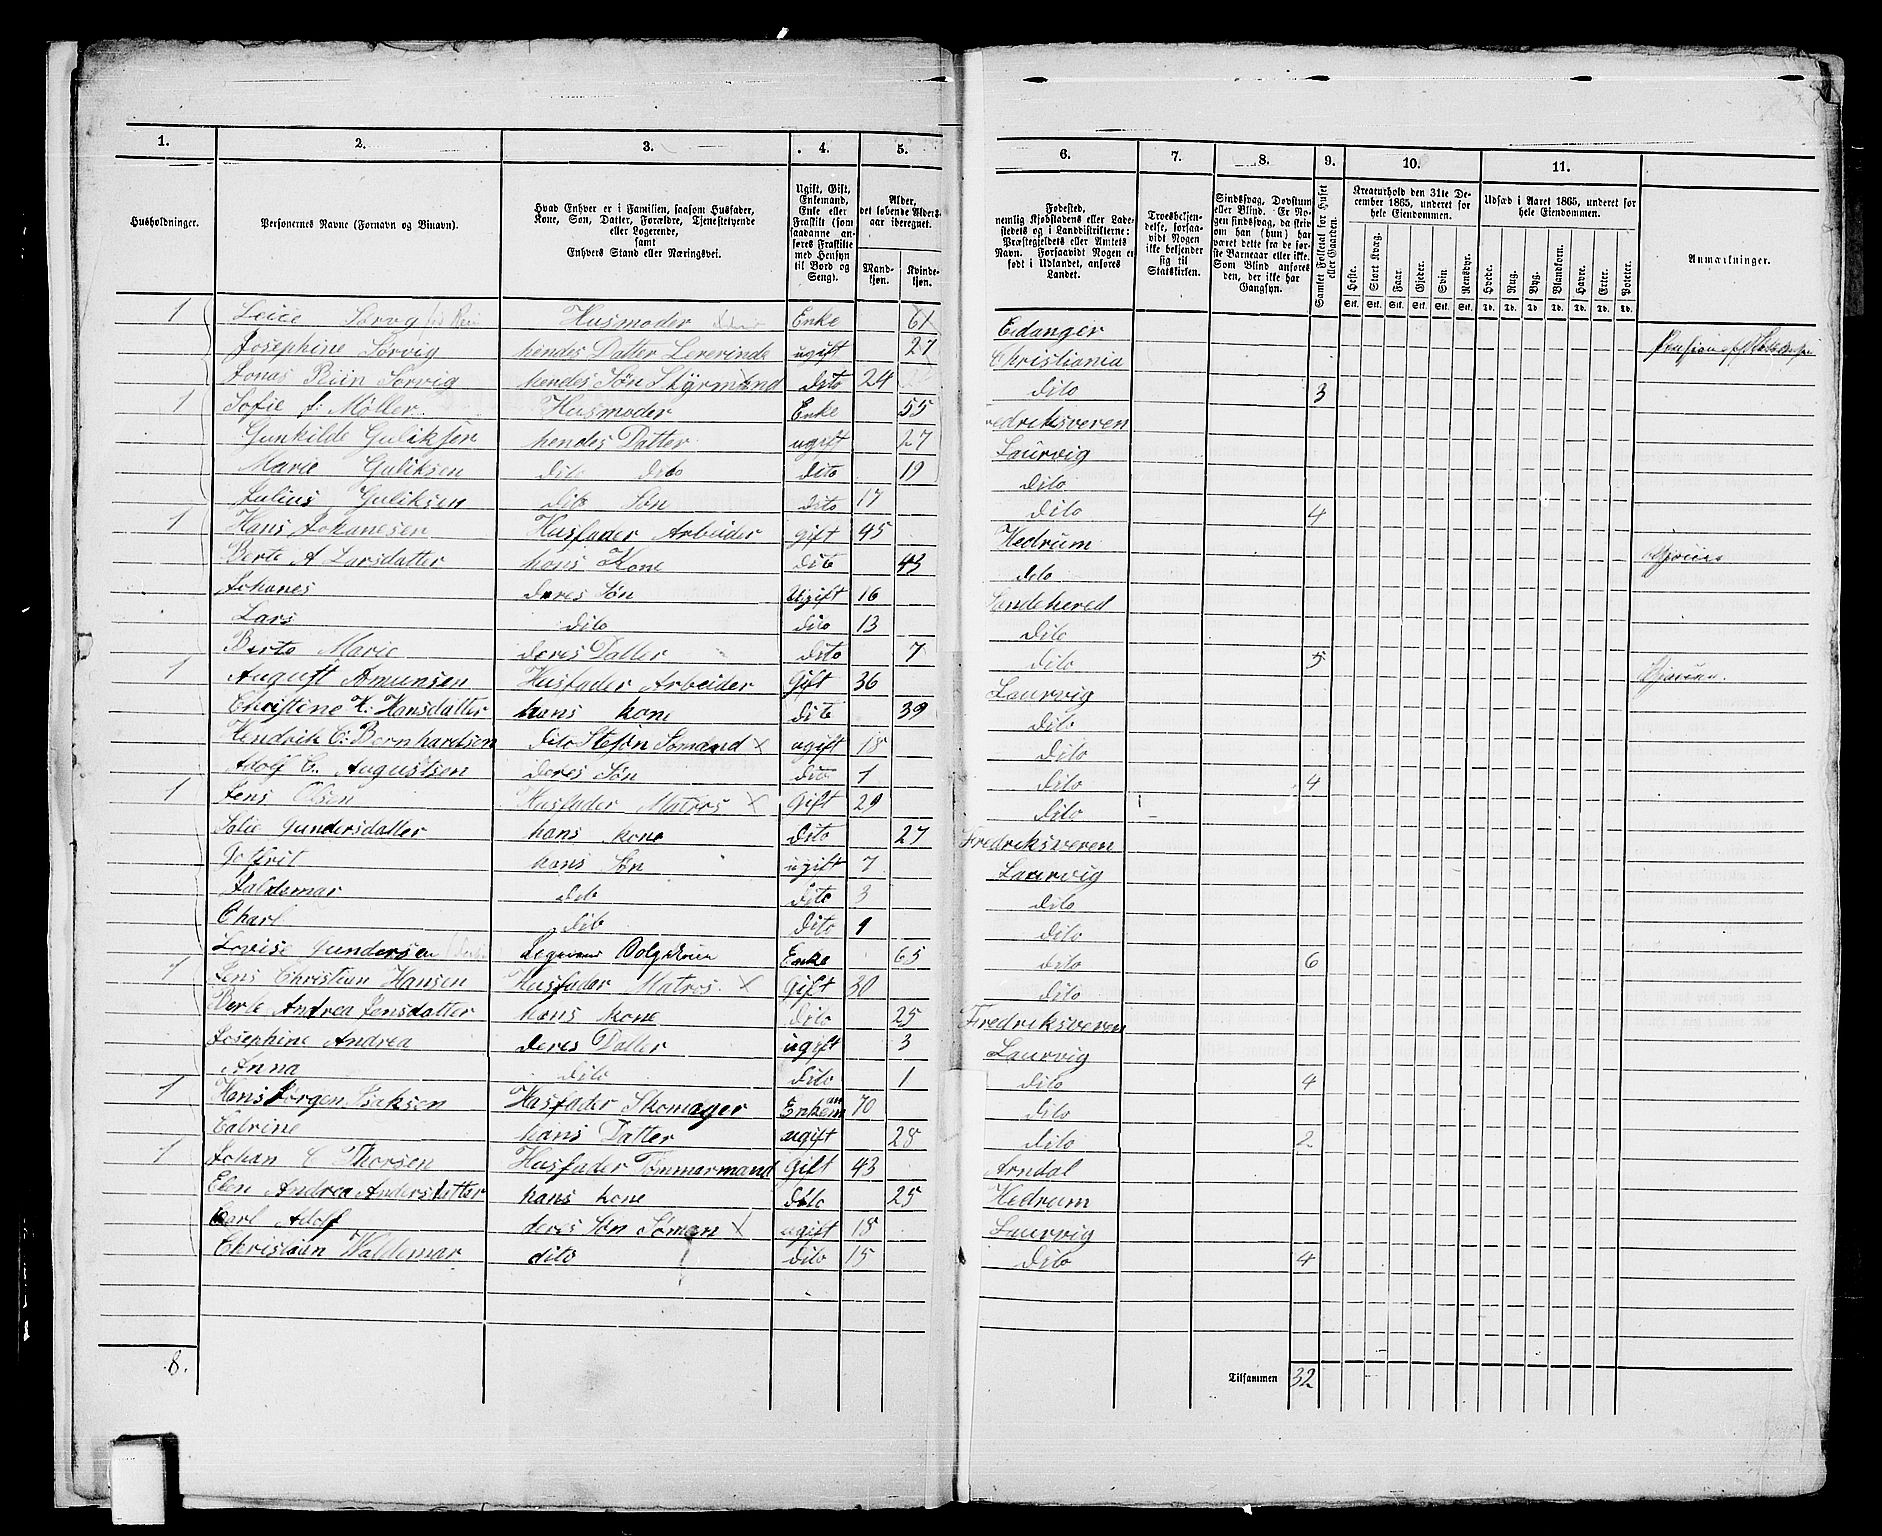 1. 2. 3. 4. 5. 6. 7. 8. 9. 10. 11.
Husholdninger.
Personernes Navne (Fornavn og Binavn).
Hvad Enhver er i Familien, saasom Husfader, Kone, Søn, Datter, Forældre, Tjenestetyende eller Logerende, samt Enhvers Stand eller Næringsvei.
Ugift, Gift, Enkemand, Enke eller Fraskilt (som saadanne anføres Fraskilte med Hensyn til Bord og Seng).
Alder, det løbende Aldersaar iberegnet.
Mandkjøn. Kvindekjøn.
Fødested, nemlig Kjøbstadens eller Ladestedets og i Landdistrikterne: Præstegjeldets eller Amtets Navn. Forsaavidt Nogen er født i Udlandet, anføres Landet.
Troesbekjendelse, forsaavidt Nogen ikke bekjender sig til Statskirken.
Sindssvag, Døvstum eller Blind. Er Nogen sindssvag, da skrives om han (hun) har været dette fra de første Barneaar eller ikke. Som Blind anføres den, der ikke har Gangsyn.
Samlet Folketal for Huset eller Gaarden.
Kreaturhold den 31te December 1865, underet for hele Eiendommen.
Heste. Stort Kvæg. Faar. Gjeder. Svin. Rensdyr.
Stk. Stk. Stk. Stk. Stk. Stk.
Udsæd i Aaret 1865, underet for hele Eiendommen.
Hvede. Rug. Byg. Blandkorn. Havre. Erter. Poteter.
Td. Td. Td. Td. Td. Td. Td.
Anmærkninger.
1 Sørvig Husmoder Enke 61 Eidanger
Josephine Sørvig hendes Datter Lererinde ugift 27 Christiania
Jonas Sørvig hendes Søn Styrmand dito 24 dito 3
1 Sofie f: Møller Husmoder Enke 55 Fredriksveren
Gunhilde Guliksen hendes Datter ugift 27 Laurvig
Marie Guliksen dito dito dito 19 dito
Julius Guliksen dito Søn dito 17 dito 4
1 Hans Johanesen Husfader Arbeider gift 45 Hedrum
Berte A Larsdatter hans Kone dito 43 dito
Johanes deres Søn Ugift 16 Sandehered
Lars dito dito 13 dito
Berte Marie deres Datter dito 7 dito 5
1 August Amunsen Husfader Arbeider Gift 36 Laurvig
Christine H: Hansdatter hans kone dito 39 dito
Hendrik C: Bernhardsen dito Stesøn Sømand x ugift 18 dito
Adolf C. Augustsen deres Søn dito 1 dito 4
1 Jens Olsen Husfader Matros x Gift 29 dito
Gundersdatter hans kone dito 27 Fredriksveren
Gotfrit hans Søn ugift 7 Laurvig
Valdemar dito dito 3 dito
Charl dito dito 1 dito
Lovise Gundersen Enke 65 dito 6
1 Jens Christian Hansen Husfader Matros x Gift 30 dito
Berte Andrea Jensdatter hans kone dito 25 Fredriksveren
Josephine Andrea deres Datter ugift 3 Laurvig
Anna dito dito 1 dito 4
1 Hans Jørgen Isaksen Husfader Skomager Enkeman 70 dito
Catrine hans Datter ugift 28 dito 2
1 Johan C Thorsen Husfader Tømmarmand Gift 43 Arndal
Elen Andrea Andersdatter hans kone dito 25 Hedrum
Carl Adolf deres Søn Søman x ugift 18 Laurvig
Christian Waldemar dito dito 15 dito 4
8. Tilsammen 32